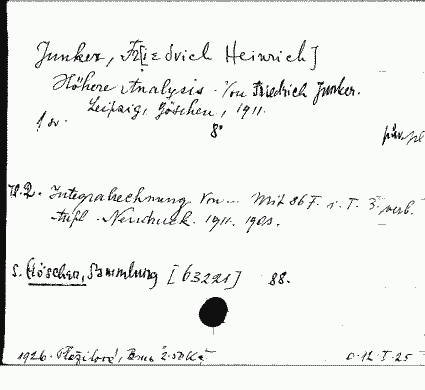 Junker, Fr[iedrich Heinrich]
Höhere Analysis. Von Friedrich Junker.
Leipzig, Göschen, 1911.
1 sv. 8°
II. 2. Integralrechnung Von... Mit 86 F. i. T. 3. verb.
Aufl. Neudruck. 1911.
s. Göschen, Sammlung [63221] 88.
1926. Brno 2.50 Kč D-12-I-25